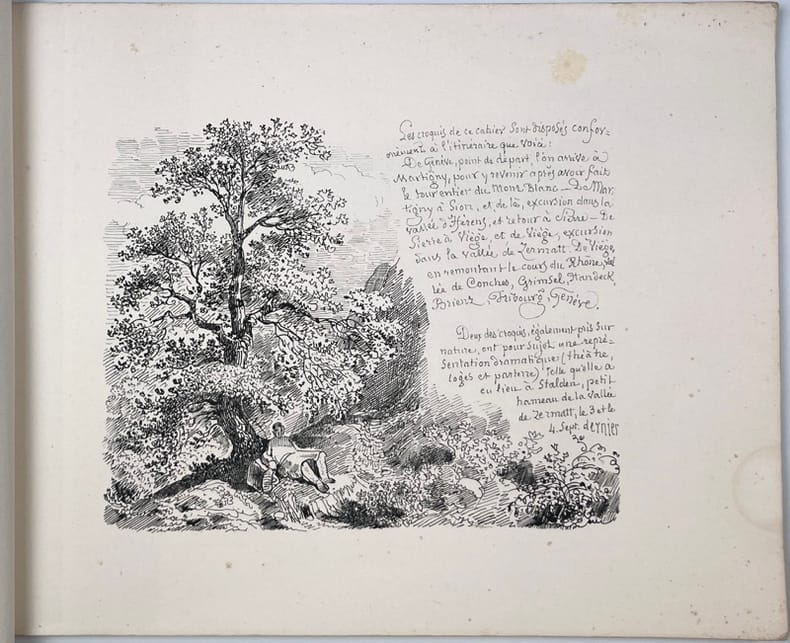 Les croquis de ce cahier sont disposés confor=
mément à l'itinéraire que voici :
De Genève, point de départ, l'on arrive à
Martigny, pour y revenir après avoir fait
le tour entier du Mont Blanc – De Mar,
tigny à Sion, et, de là, excursion dans la
vallée d'Hérens, et retour à Sierre – De
Sierre à Viège, et de Viège, excursion
dans la vallée de Zermatt. De Viège,
en remontant le cours du Rhône, val
lée de Conches, Grimsel, Handeck,
Brienz, Fribourg, Genève.
Deux des croquis, également pris sur
nature, ont pour sujet une repré=
sentation dramatique (théâtre,
loges et parterre) telle qu'elle a
eu lieu à Stalden, petit
hameau de la vallée
de Zermatt, le 3 et le
4. Sept. dernier